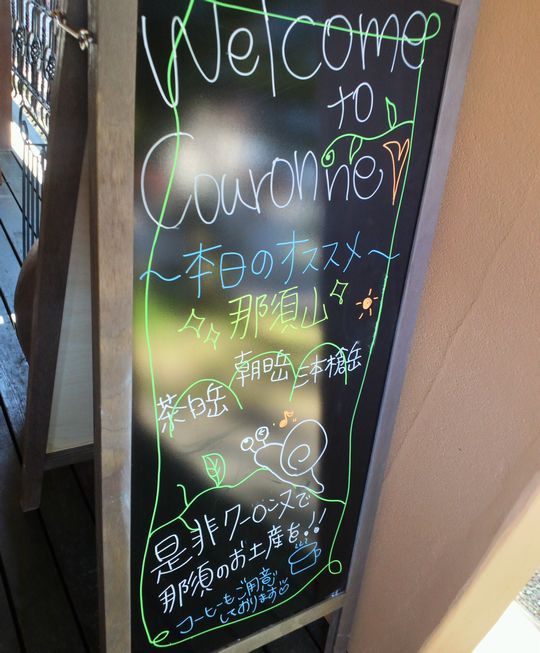 Welcome
to
Couronne
～本日のオススメ～
那須山
茶臼岳 朝日岳 三本槍岳
是非クーロンヌで
那須のお土産を!!
コーヒーもご用意
しております